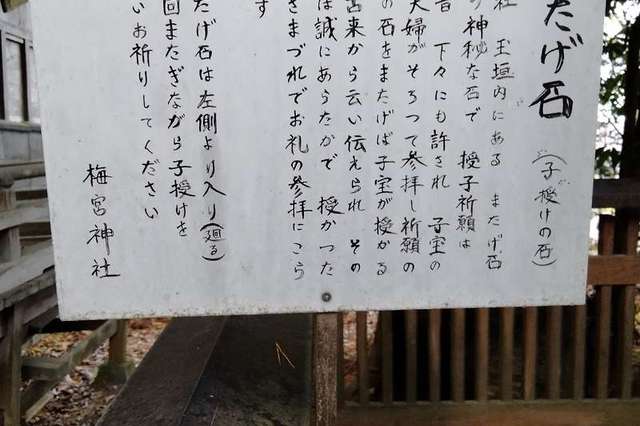 たげ石
(子授けの石)
社 玉垣内にある またげ石
神秘な石で 授子祈願は
下々にも許され 子宝の
夫婦がそろって参拝し祈願の
の石をまたげば子宝が授かる
古来から云い伝えられ その
は誠にあらたかで 授かった
さまづれでお礼の参拝にこら
す
たげ石は左側より入り(廻る)
回またぎながら子授けを
いお祈りしてください
梅宮神社